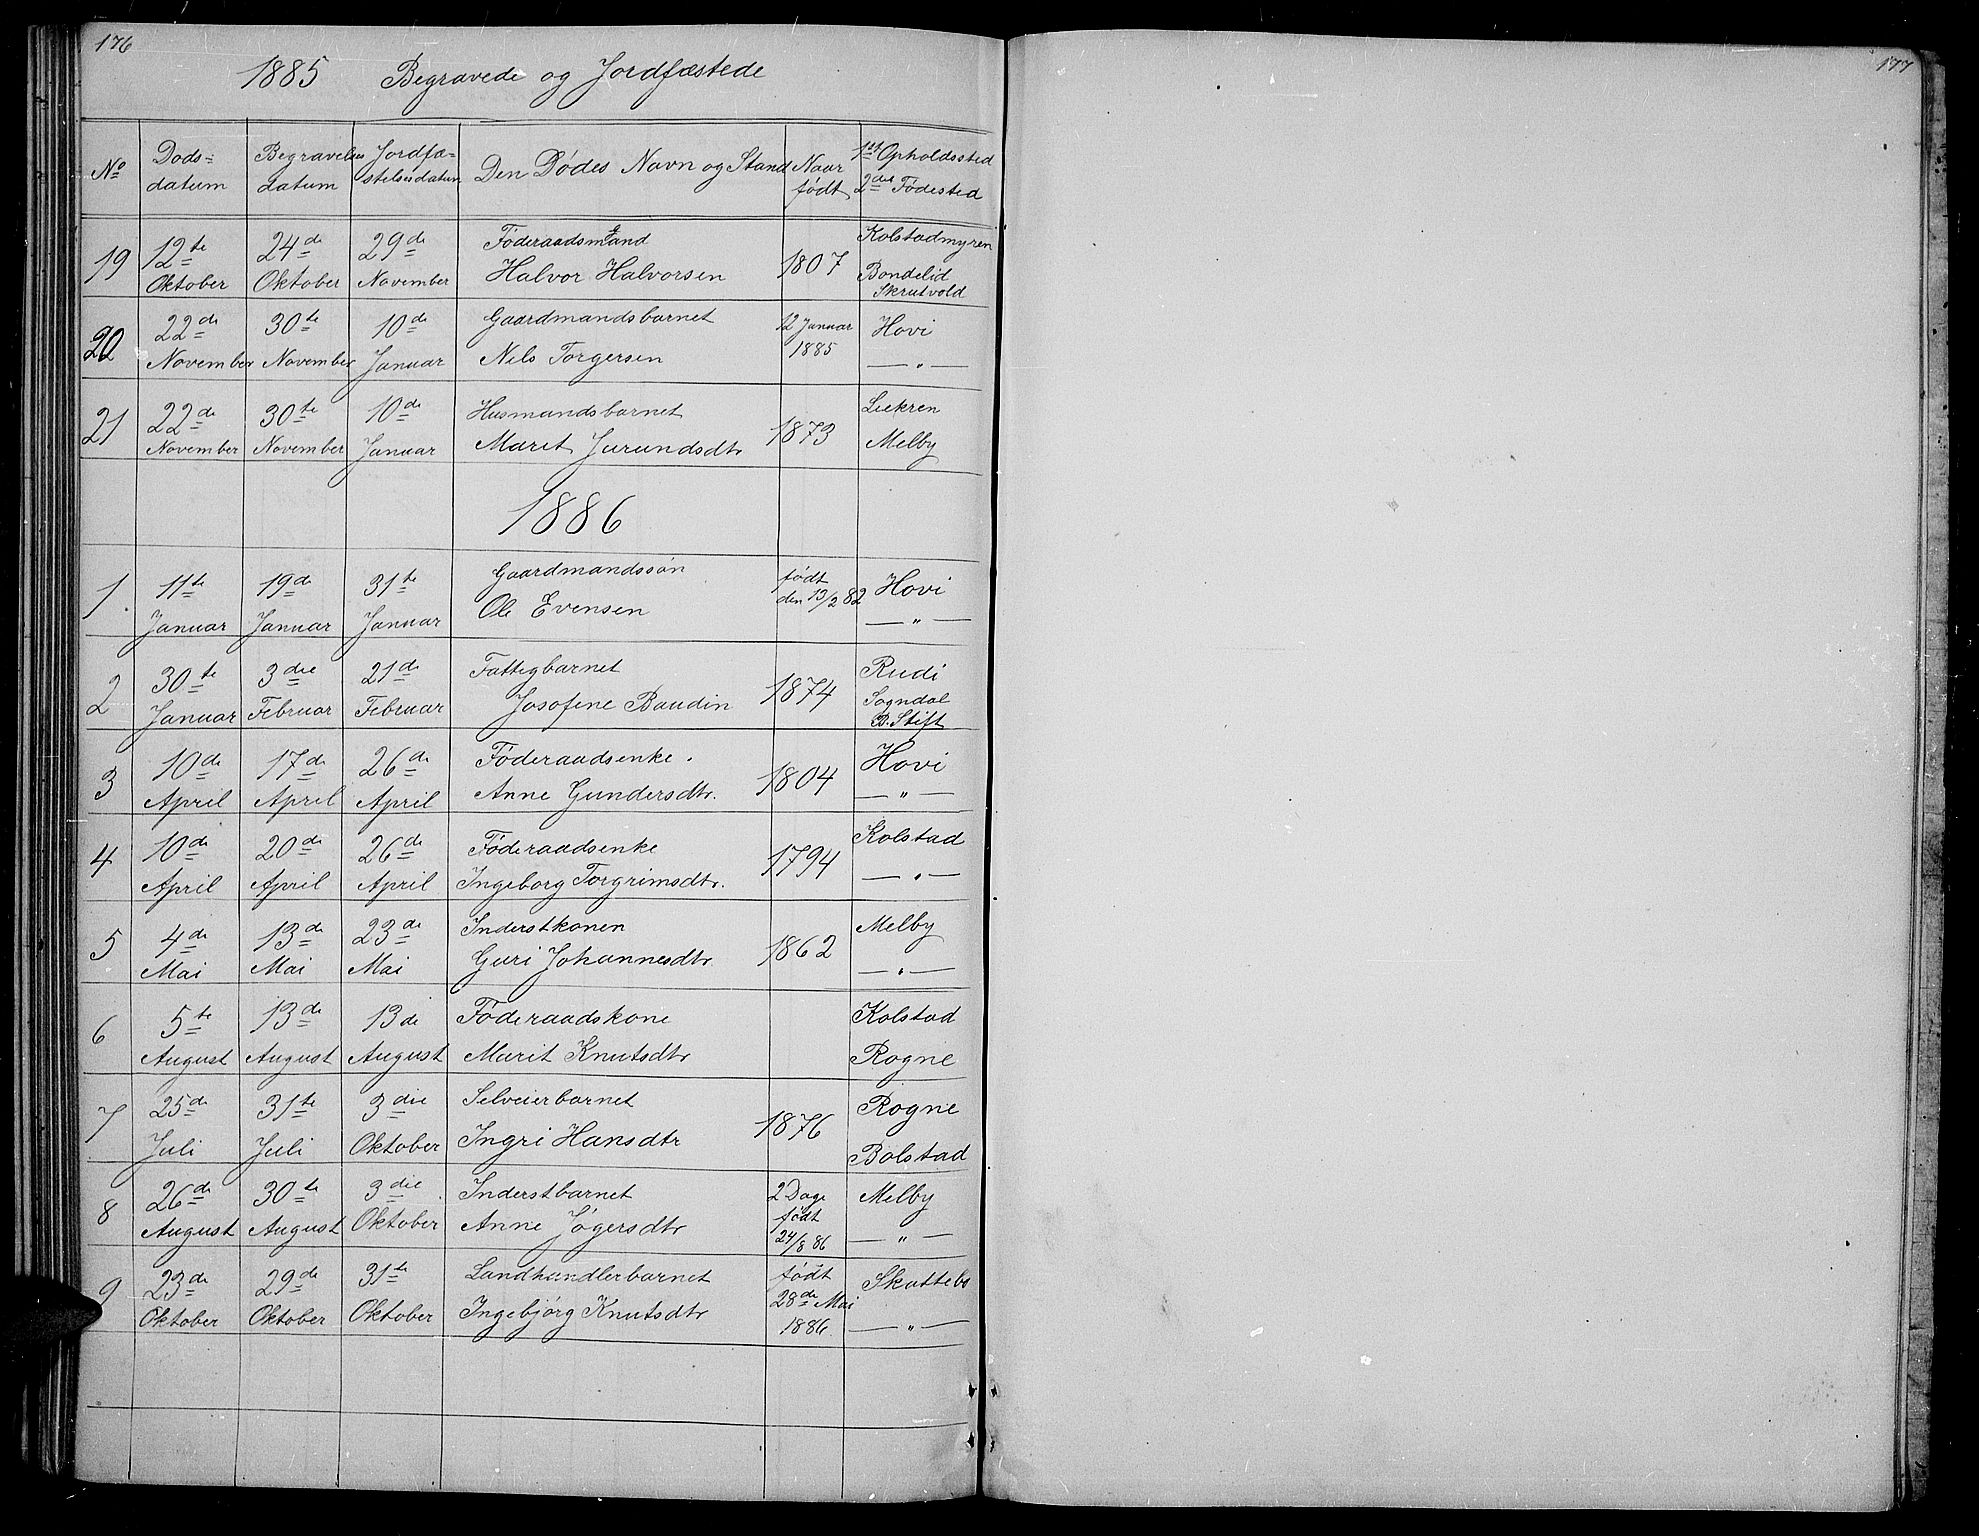 176
1885 Begravede og Jordfæstede
No Døds= datum Begravelses datum Jordfæ= stelsesdatum Den Dødes Navn og Stand Naar født 1st Opholdssted 2det Fødested
19 12te Oktober 24de Oktober 29de November Føderaadsmand Halvor Halvorsen 1807 Kolstadmyren Bondelid Skrutvold
20 22de November 30te November 10de Januar Gaardmandsbarnet Nils Torgersen 12 Januar 1885 Hovi — " —
21 22de November 30te November 10de Januar Husmandsbarnet Marit Jurundsdtr 1873 Liekren Melby
1886
1. 11te Januar 19de Januar 31te Januar Gaardmandssøn Ole Evensen født den 13/2 82 Hovi — " —
2 30te Januar 3die Februar 21de Februar Fattigbarnet Josefine Baudin 1874 Rudi Sogndal B. Stift
3 10de April 17de April 26de April Føderaadsenke. Anne Gundersdtr. 1804 Hovi — " —
4 10de April 20de April 26de April Føderaadsenke Ingeborg Torgrimsdtr. 1794 Kolstad — " —
5 4de Mai 13de Mai 23de Mai Inderstkonen Guri Johannesdtr 1862 Melby — " —
6 5te August 13de August 13de August Føderaadskone Marit Knutsdtr Kolstad Rogne
7 25de Juli 31te Juli 3die Oktober Selveierbarnet Ingri Hansdtr 1876 Rogne Bolstad
8 26de August 30te August 3die Oktober Inderstbarnet Anne Jøgersdtr 2 Dage født 24/8 86 Melby — " —
9 23de Oktober 29de Oktober 31te Oktober Landhandlerbarnet Ingebjørg Knutsdtr født 28de Mai 1886 Skattebo — " —
177